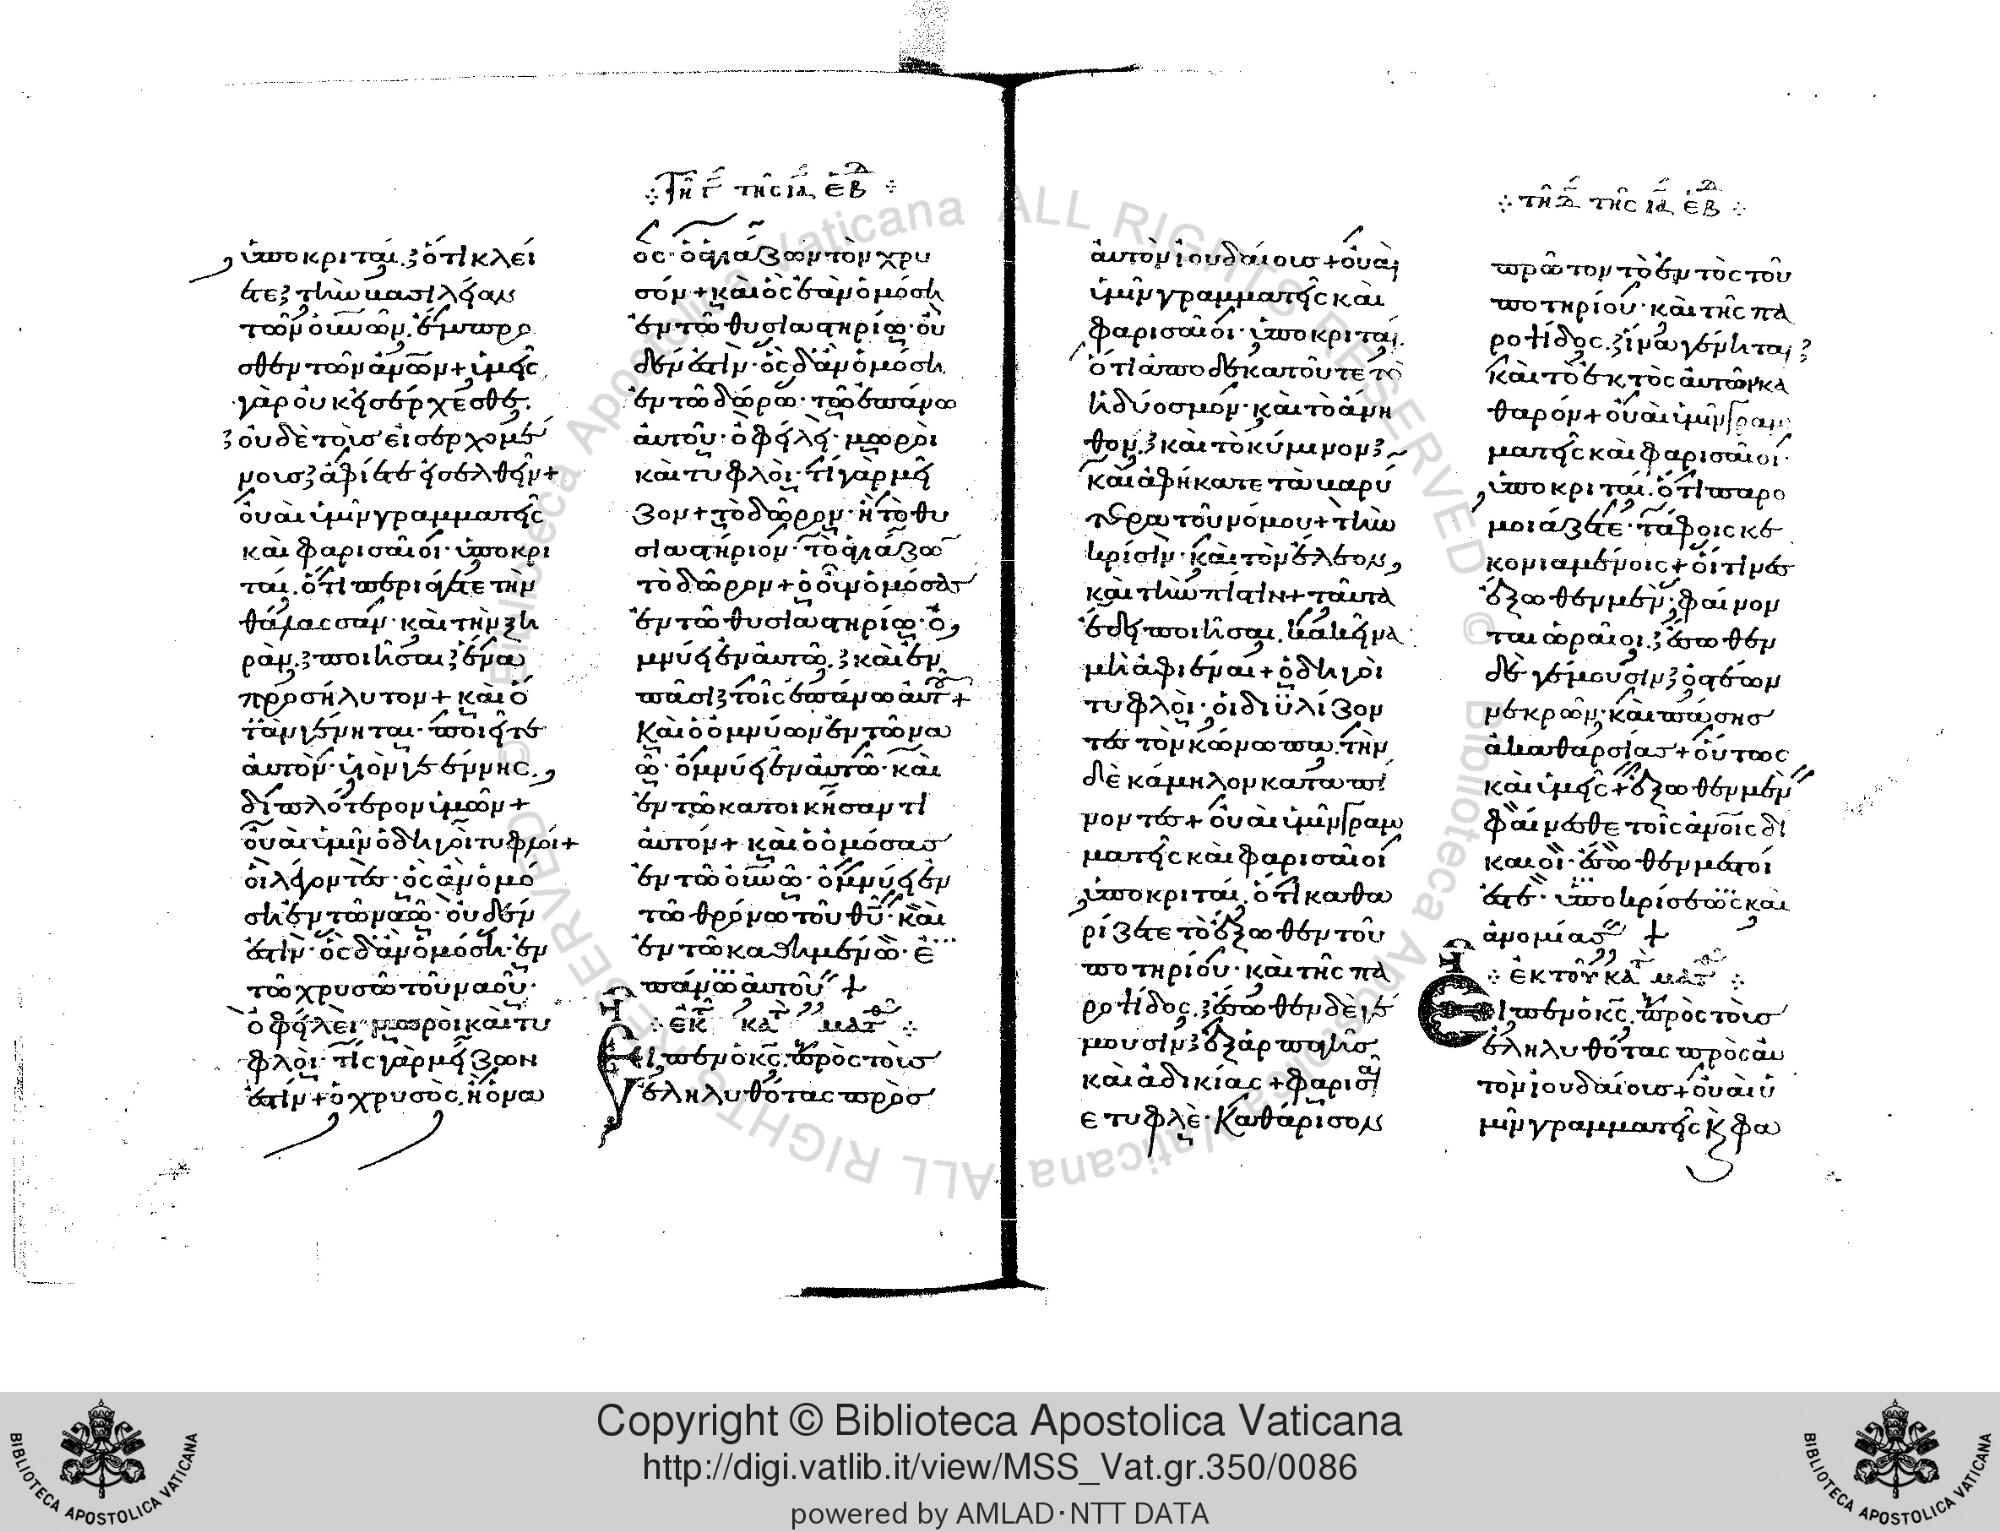 ὑποκριταί. ὅτι κλεί
ετε τὴν βασιλείαν
τῶν οὐνῶν. ἔμπρο
σθεν τῶν ἀνων + ὑμεῖς
γὰρ οὐκ εἰσέρχεσθε.
οὐδὲ τοὺς εἰσερχομέ
νους ἀφίετε εἰσελθεῖν +
οὐαὶ ὑμῖν γραμματεῖς
καὶ φαρισαῖοι· ὑποκρι
ταί. ὅτι περιάγετε τὴν
θάλασσαν· καὶ τὴν ξη
ρὰν. ποιῆσαι ἕνα
προσήλυτον + καὶ ὅ
τὰν γένηται· ποιεῖτε
αὐτὸν· υἱὸν γεέννης.
διπλότερον ὑμῶν +
οὐαὶ ὑμῖν ὁδηγοὶ τυφλοί +
οἱ λέγοντες· ὃς ἂν ὀμό
ση ἐν τῶ ναῶ· οὐδέν
ἐστὶν· ὃς δ' ἂν ὀμόση· ἐν
τῶ χρυσῶ τοῦ ναοῦ·
ὀφείλει μωροὶ καὶ τυ
φλοὶ· τίς γὰρ μείζων
ἐστίν + ὁ χρυσὸς. ἢ ὁ να
Τῆ γ τῆς ια ἑβδ
ὸς· ὁ ἁγιάζων τὸν χρυ
σόν + καὶ ὃς ἐὰν ὀμόση
ἐν τῶ θυσιαστηρίω· οὐ
δέν ἐστὶν· ὃς δ' ἂν ὀμόση
ἐν τῶ δώρω· τῶ ἐπάνω
αὐτοῦ· ὀφείλει· μωροὶ
καὶ τυφλοὶ· τί γὰρ μεῖ
ζον + τὸ δῶρον· ἢ τὸ θυ
σιαστήριον· τὸ ἁγιάζω
τὸ δῶρον + ὁ οὖν ὀμόσας
ἐν τῶ θυσιαστηρίω· ὀ
μνύει ἐν αὐτῶ. καὶ ἐν
πᾶσι τοῖς ἐπάνω αὐτ +
Καὶ ὁ ὀμνύων ἐν τῶ να
ῶ· ὀμνύει ἐν αὐτῶ· καὶ
ἐν τῶ κατοικήσαντι
αὐτόν + καὶ ὁ ὀμόσας
ἐν τῶ οὐνῶ· ὀμνύει ἐν
τῶ θρόνω τοῦ θῦ· καὶ
ἐν τῶ καθημένω· ἐ
πάνω αὐτοῦ +
ἐκ κατ ματθ
Εἶπεν ὁ κς. πρὸς τοὺς
ἐληλυθότας πρὸς
αὐτὸν ἰουδαίους + οὐαὶ
ὑμῖν γραμματεῖς καὶ
φαρισαῖοι· ὑποκριταί.
ὅτι ἀποδεκατοῦτε τὸ
ἡδύοσμόν· καὶ τὸ ἄνη
θον. καὶ τὸ κύμινον
καὶ ἀφήκατε τὰ βαρύ
τερα τοῦ νόμου + τὴν
κρίσιν· καὶ τὸν ἔλεον,
καὶ τὴν πίστιν + ταῦτα
ἔδει ποιῆσαι. κακεῖνα
μὴ ἀφιέναι + ὁδηγοὶ
τυφλοὶ· οἱ διϋλίζον
τες τὸν κώνωπα. τὴν
δὲ κάμηλον καταπί
νοντες + οὐαὶ ὑμῖν γραμ
ματεῖς καὶ φαρισαῖοι
ὑποκριταί. ὅτι καθα
ρίζετε τὸ ἔξωθεν τοῦ
ποτηρίου· καὶ τῆς πα
ροψίδος. ἔσωθεν δὲ γέ
μουσιν ἐξ ἁρπαγῆς
καὶ ἀδικίας + φαρισαῖ
ε τυφλὲ· Καθάρισον
τῆ δ τῆς ια ἑβδ
πρῶτον τὸ ἐντὸς τοῦ
ποτηρίου· καὶ τῆς πα
ροψίδος. ἵνα γένηται
καὶ τὸ ἐκτὸς αὐτῶν κα
θαρόν + οὐαὶ ὑμῖν γραμ
ματεῖς καὶ φαρισαῖοι·
ὑποκριταί. ὅτι παρο
μοιάζετε· τάφοις κε
κονιαμένοις + οἵτινες
ἔξωθεν μὲν· φαίνον
ται ὡραῖοι. ἔσωθεν
δὲ γέμουσιν ὀστέων
νεκρῶν· καὶ πάσης
ἀκαθαρσίας + οὕτως
καὶ ὑμεῖς + ἔξωθεν μὲν
φαίνεσθε τοῖς ἀνοις δί
καιοι· ἔσωθεν μεστοί
ἐστε· ὑποκρίσεως καὶ
ἀνομίας +
ἐκ τοῦ κατ ματθ
Εἶπεν ὁ κς. πρὸς τοὺς
ἐληλυθότας πρὸς αὐ
τὸν ἰουδαίους + οὐαὶ ὑ
μῖν γραμματεῖς κ φα
Copyright © Biblioteca Apostolica Vaticana
http://digi.vatlib.it/view/MSS_Vat.gr.350/0086
powered by AMLAD·NTT DATA